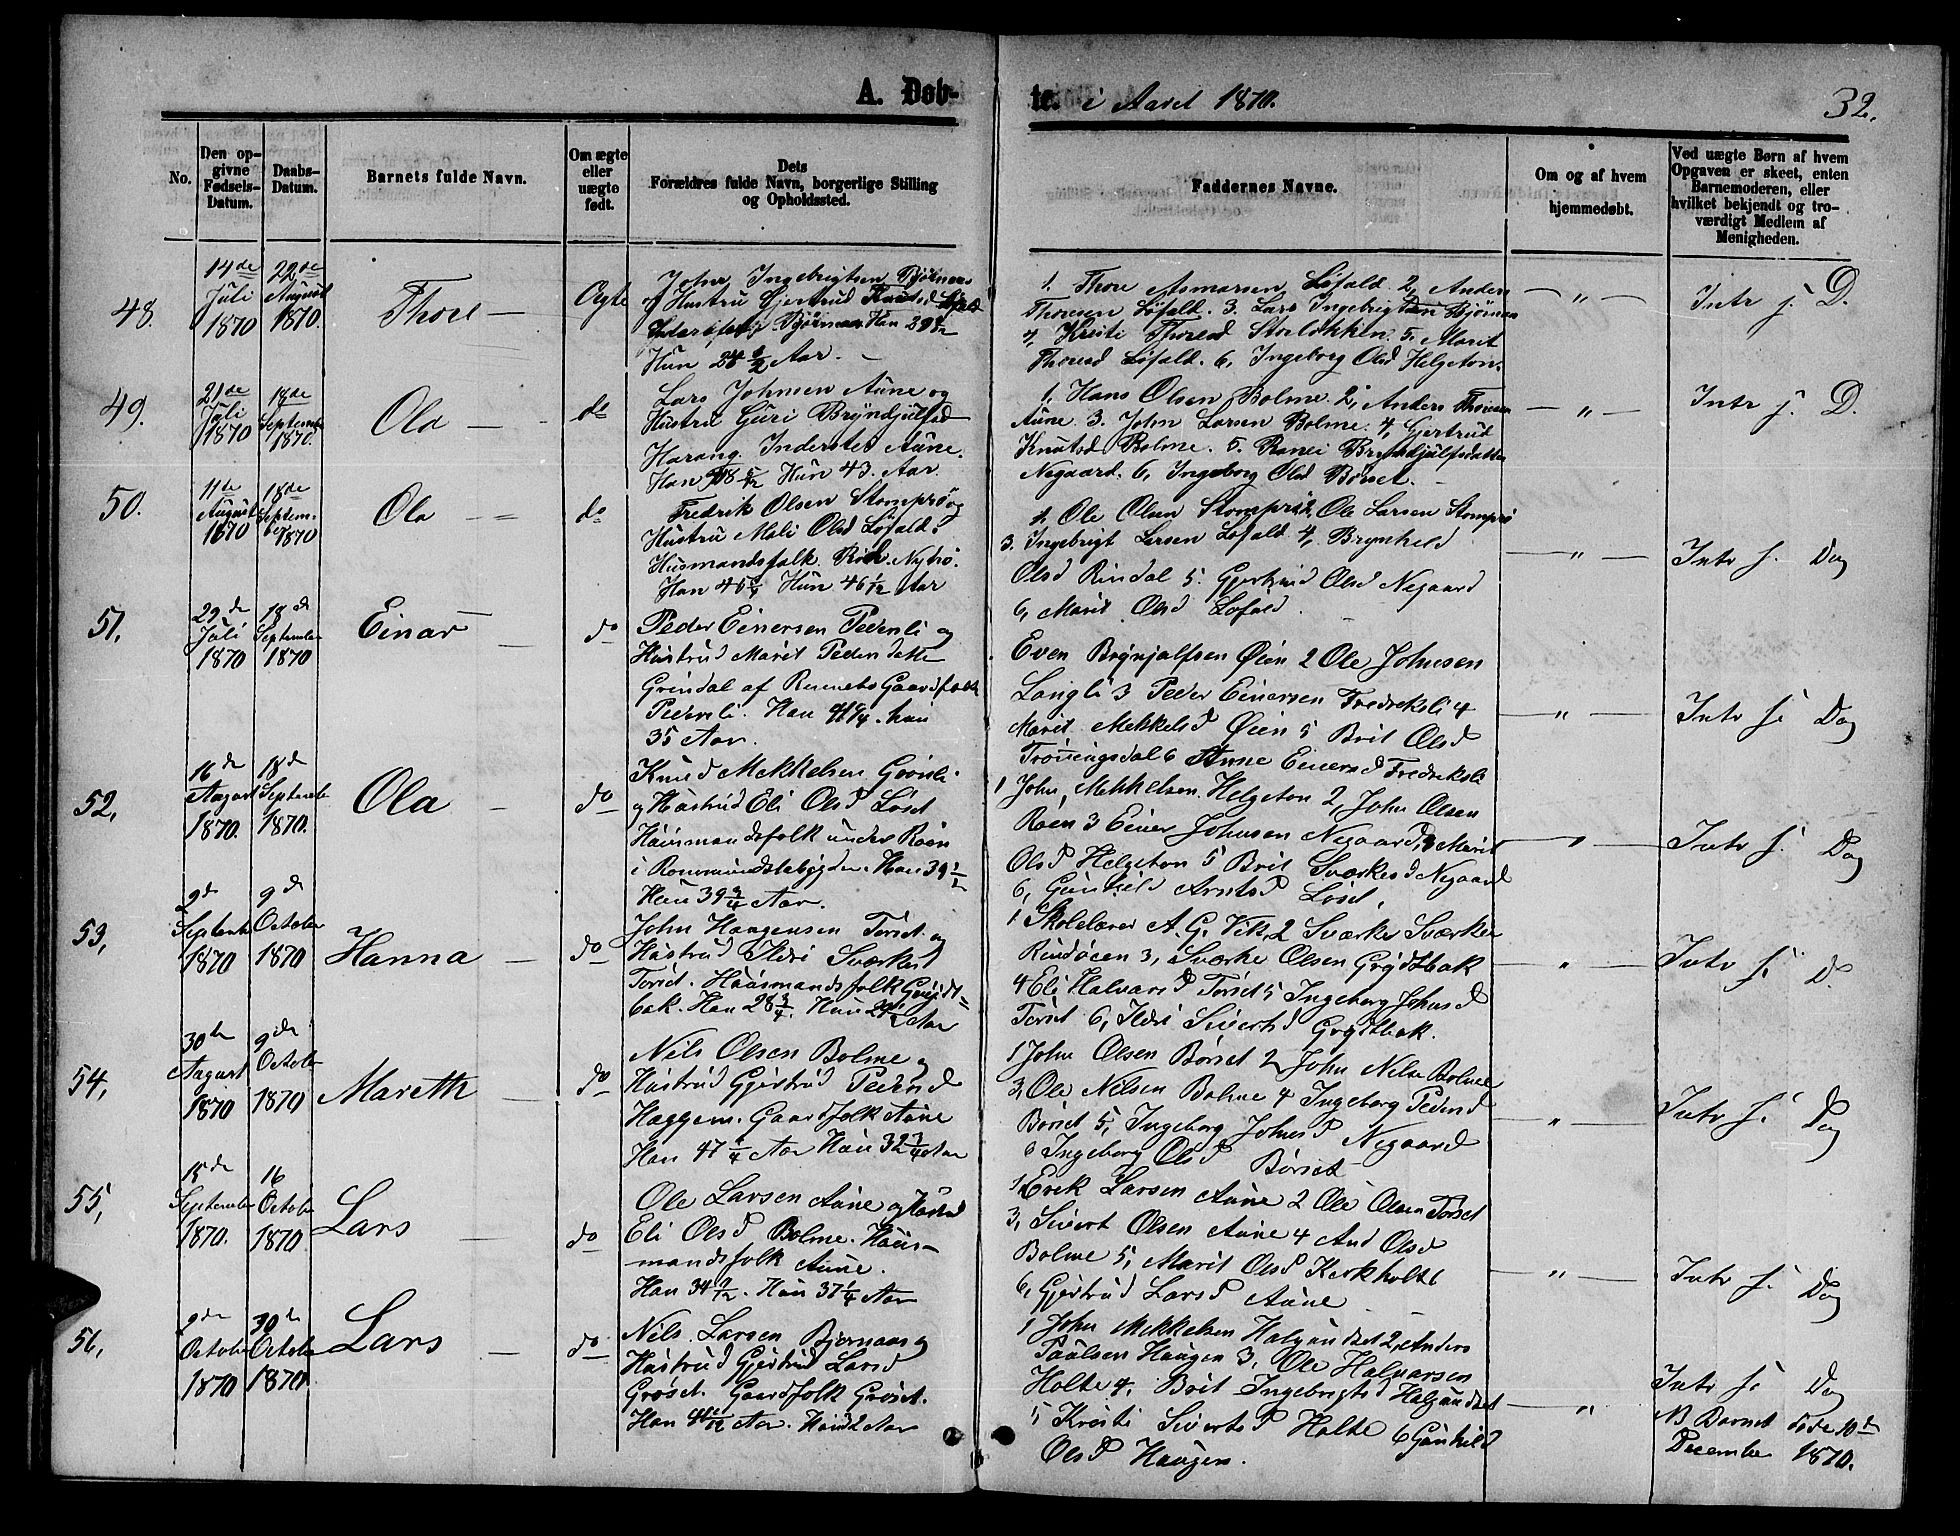 A. Døb-
te. i Aaret 1870.
32.
No.
Den op-
givne
Fødsels-
Datum.
Daabs-
Datum.
Barnets fulde Navn.
Om ægte
eller
uægte
født.
Dets
Forældres fulde Navn, borgerlige Stilling
og Opholdssted.
Faddernes Navne.
Om og af hvem
hjemmedøbt.
Ved uægte Børn af hvem
Opgaven er skeet, enten
Barnemoderen, eller
hvilket bekjendt og tro-
værdigt Medlem af
Menigheden.
48.
14de
Juli
1870
22de
August
1870.
Thore
Ægte
John Ingebrigtsen Bjørnaas
og Hustru Gjertrud
Bjørnaas Han
Hun Aar.
1, Thore Asmarsen Løfald. 2, Anders
Thoresen Løfald. 3. Lars Ingebrigtsen Bjørnaas
4, Kristi Thoresd Storløkken. 5. Marit
Thoresd Løfald. 6, Ingeborg Olsd Helgeton.
— " —
Intr s. D.
49.
21de
Juli
1870
18de
September
1870.
Ola
do
Lars Johnsen Aune og
Hustru Guri Bryndjulfsd
Harang. Inderster Aune.
Han Hun 43. Aar
1, Hans Olsen Bolme. 2, Anders Thoresen
Aune. 3. John Larsen Bolme. 4, Gjertrud
Knutsd Bolme. 5. Ranei Bryndjulfsdatter
Negaard. 6, Ingeborg Olsd Børset.
— " —
Intr s. D.
50.
11de
August
1870
18de
Septem-
ber 1870
Ola
do
Fredrik Olsen Stomprø og
Hustru Mali Olsd Løfald.
Husmandsfolk Nyhø.
Han Hun 46 1/12 Aar
1, Ole Olsen Stomprø 2, Ole Larsen Stomprø
3. Ingebrigt Larsen Løfald 4, Brynhild
Olsd Rindal 5. Gjertrud Olsd Negaard
6, Marit Olsd Løfald.
— " —
Intr s. Dag
51,
22de
Juli
1870
18de
September
1870
Einar
do
Peder Einersen Pedernli og
Hustrud Marit Pedersdatter
Grindal af Rennebo Gaardfolk
Pedernli. Han hun
35 Aar.
Even Brynjulfsen Øien 2 Ole Johnsen
Langli 3 Peder Einersen Fredrekli 4
Marit Mekkelsd Øien 5 Brit Olsd
Trøningsdal 6 Anne Einersd Fredrekli
— " —
Intr s. Dag
52,
16de
August
1870.
18de
September
1870.
Ola
do
Knud Mekkelsen Grønli
og Hustrud Eli Olsd Løset
Huusmandsfolk under Roen
i Rommundstabygden. Han 39 1/2
Hun 39 3/4 Aar.
1 John Mekkelsen Helgeton 2, John Olsen
Roen 3 Einer Johnsen Negaard, 4 Marit
Olsd Helgeton 5 Brit Sværkesd Negaard
6, Gunhild Arntsd Løset,
— " —
Intr s. Dag
53,
2de
September
1870
9de
October
1870
Hanna
do
John Haagensen Torset og
Hustrud Ildri Sværkesd
Torset. Huusmandsfolk Grytt-
bak. Han 28 3/4. Hun Aar
1 Skolelærer A. G. Vik, 2 Sværke Sværkesen
Rindøien 3, Sværke Olsen Grøttbak
4 Eli Halvarsd Torset 5 Ingeborg Johnsd
Torset 6, Ildri Sivertsd Grøttbak.
— " —
Intr s. D.
54,
30te
August
1870
9de
October
1870
Mareth
do
Nils Olsen Bolme og
Hustrud Gjertrud Pedersd
Haggem. Gaardfolk Aune
Han 47 1/4 Aar Hun 32 3/4 Aar
1 John Olsen Børset 2 John Nilsen Bolme
3, Ole Nilsen Bolme 4 Ingeborg Pedersd
Børset 5, Ingeborg Johnsd Negaard
6 Ingeborg Olsd Børset
— " —
Intr s. Dag
55,
15de
September
1870.
16
October
1870
Lars
do
Ole Larsen Aune og Hustrud
Eli Olsd Bolme. Huus-
mandsfolk Aune.
Han 34 Hun 37 1/4 Aar
1, Erek Larsen Aune 2 Ole Olsen Torset
3, Sivert Olsen Aune 4 And Olsd
Bolme 5, Marit Olsd Kerkholt
6, Gjertrud Larsd Aune
— " —
Intr s. Dag
56,
2de
October
1870
30te
October
1870
Lars
do
Nils Larsen Bjørnaas og
Hustrud Gjertrud Larsd
Grøset. Gaardfolk Grøset.
Han Aar. Hun Aar
1 John Mekkelsen Halgundset 2, Anders
Paulsen Haugen 3, Ole Halvarsen
Holte 4, Brit Ingebrigtsd Halgundset
5 Kristi Sivertsd Holte 6 Gunhild
Olsd Haugen.
— " —
Intr s. Dag
NB Barnet døde 10de
December 1870.